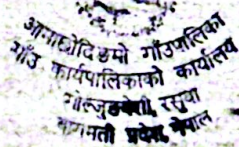 आमाछोदिङमो गाँउपालिका
गाँउ कार्यपालिकाको कार्यालय
गोल्जुङबेसी, रसुवा
बागमती प्रदेश, नेपाल